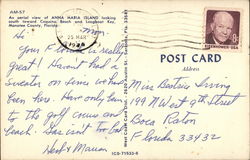 AM-57
An aerial view of ANNA MARIA ISLAND looking
south toward Coquina Beach and Longboat Key,
Manatee County, Florida.
Mon.
Hi
Your Florida is really
great! Haven't had a
sweater on since we have
been here. Have only been
to the golf course and
beach. Has isn't too bad
Herb & Marion
25 MAR
EISENHOWER · USA
POST CARD
Address
Miss Beatrice Irving
199 N West 9th Street
Boca Raton
Florida 33432
ICS-71933-R